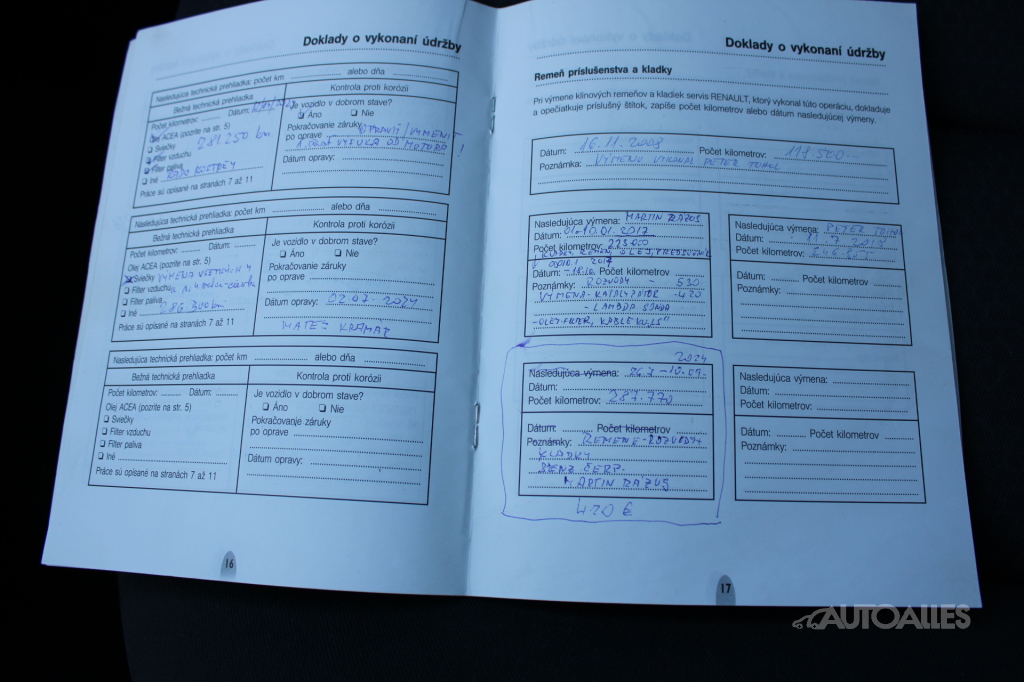 Doklady o vykonaní údržby
Nasledujúca technická prehliadka: počet km alebo dňa
Bežná technická prehliadka
Kontrola proti korózii
Počet kilometrov: Dátum:
Olej ACEA (pozrite na str. 5)
Sviečky 281.250 km
Filter vzduchu
Filter paliva
Iné
Práce sú opísané na stranách 7 až 11
Je vozidlo v dobrom stave?
Áno Nie
Pokračovanie záruky
po oprave OPRAVIŤ/VYMENIŤ
Dátum opravy:
Nasledujúca technická prehliadka: počet km alebo dňa
Bežná technická prehliadka
Kontrola proti korózii
Počet kilometrov: Dátum:
Olej ACEA (pozrite na str. 5)
Sviečky VÝMENA VŠETKÝCH 4
Filter vzduchu
Filter paliva
Iné 286.300 km
Práce sú opísané na stranách 7 až 11
Je vozidlo v dobrom stave?
Áno Nie
Pokračovanie záruky
po oprave
Dátum opravy: 02.07.2024
MATEJ KRAMÁR
Nasledujúca technická prehliadka: počet km alebo dňa
Bežná technická prehliadka
Kontrola proti korózii
Počet kilometrov: Dátum:
Olej ACEA (pozrite na str. 5)
Sviečky
Filter vzduchu
Filter paliva
Iné
Práce sú opísané na stranách 7 až 11
Je vozidlo v dobrom stave?
Áno Nie
Pokračovanie záruky
po oprave
Dátum opravy:
16
Doklady o vykonaní údržby
Remeň príslušenstva a kladky
Pri výmene klinových remeňov a kladiek servis RENAULT, ktorý vykonal túto operáciu, dokladuje
a opečiatkuje príslušný štítok, zapíše počet kilometrov alebo dátum nasledujúcej výmeny.
Dátum: 16.11.2009 Počet kilometrov: 111 500
Poznámka: VÝMENU VYKONAL PETER
Nasledujúca výmena: MARTIN RAZUS
Dátum: 01-10.01.2017
Počet kilometrov: 223 000
Dátum: Počet kilometrov
Poznámky: ROZVODY - 530
VÝMENA - KATALYZÁTOR - 420
- LAMBDA SONDA
- OLEJ-FILTER, KABLE
Nasledujúca výmena: PETER
Dátum:
Počet kilometrov:
Dátum: Počet kilometrov
Poznámky:
2024
Nasledujúca výmena:
Dátum:
Počet kilometrov: 287.770
Dátum: Počet kilometrov
Poznámky: REMENE - ROZVODY
KLADKY
MARTIN RAZUS
420 €
Nasledujúca výmena:
Dátum:
Počet kilometrov:
Dátum: Počet kilometrov
Poznámky:
17
AUTOALLES